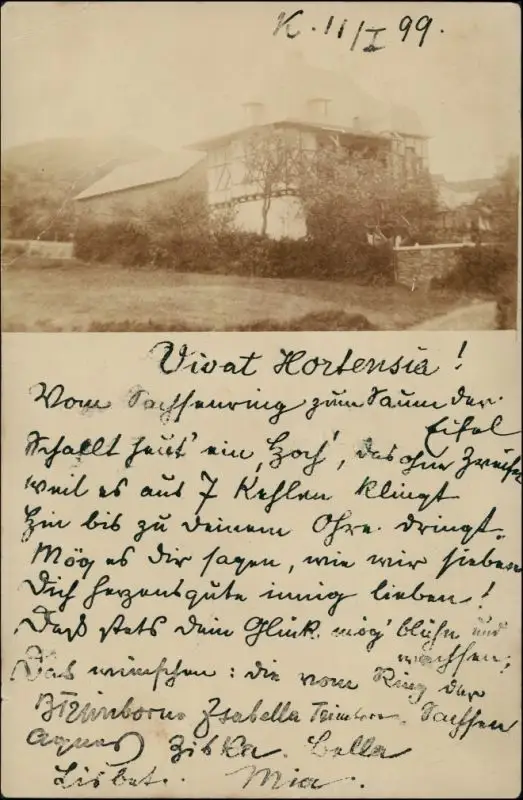 K. 11/I 99.
Vivat Hortensia!
Vom Sachsenring zum Saum der
Eifel
Schallt heut' ein „Hoch“, das ohne Zweifel
weil es aus 7 Kehlen klingt
Hin bis zu deinem Ohre dringt.
Mög es dir sagen, wie wir sieben
Dich herzensgute innig lieben!
Daß stets dein Glück mög' blühn und
wachsen;
Das wünschen: die vom Ring der
Sachsen
Isabella
Agnes Ziska. Bella
Lisbet. Mia.